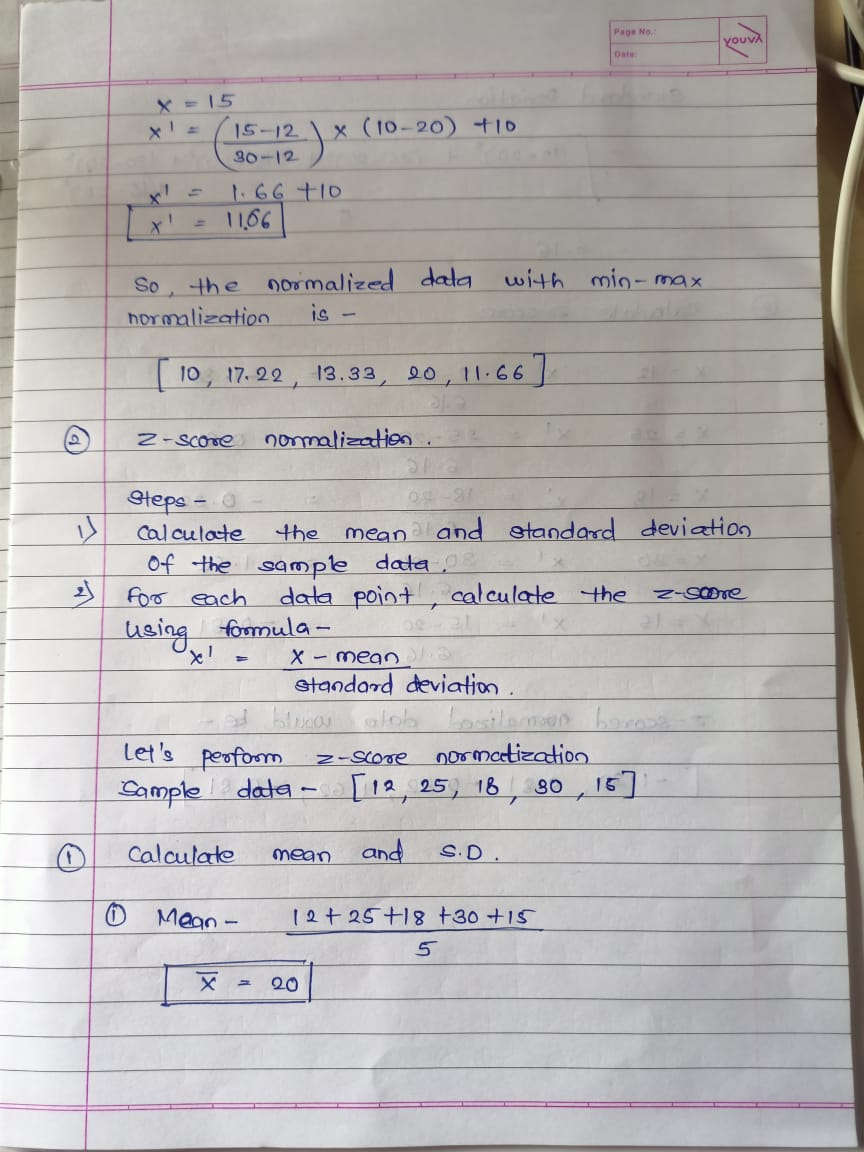 Page No.:
Date:
YOUVA
x = 15
x' = (15-12 / 30-12) x (10-20) +10
x' = 1.66 +10
x' = 11.66
So, the normalized data with min-max
normalization is -
[10, 17.22, 13.33, 20, 11.66]
② z-score normalization.
Steps -
1) Calculate the mean and standard deviation
of the sample data.
2) for each data point, calculate the z-score
using formula -
x' = x - mean
standard deviation.
Let's perform z-score normalization
Sample data - [12, 25, 18, 30, 15]
① Calculate mean and S.D.
① Mean - 12+25+18+30+15
5
x̅ = 20